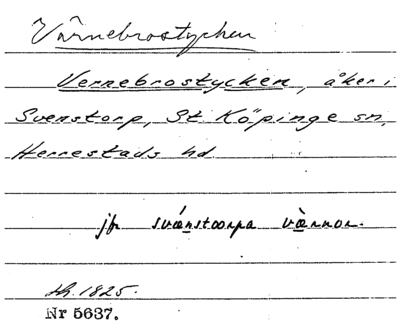 Värnebrostycken
Vernebrostycken, åker i
Svenstorp, St Köpinge sn,
Herrestads hd
jfr svǽnstoorpa væ̀rnor.
1825.
Nr 5637.